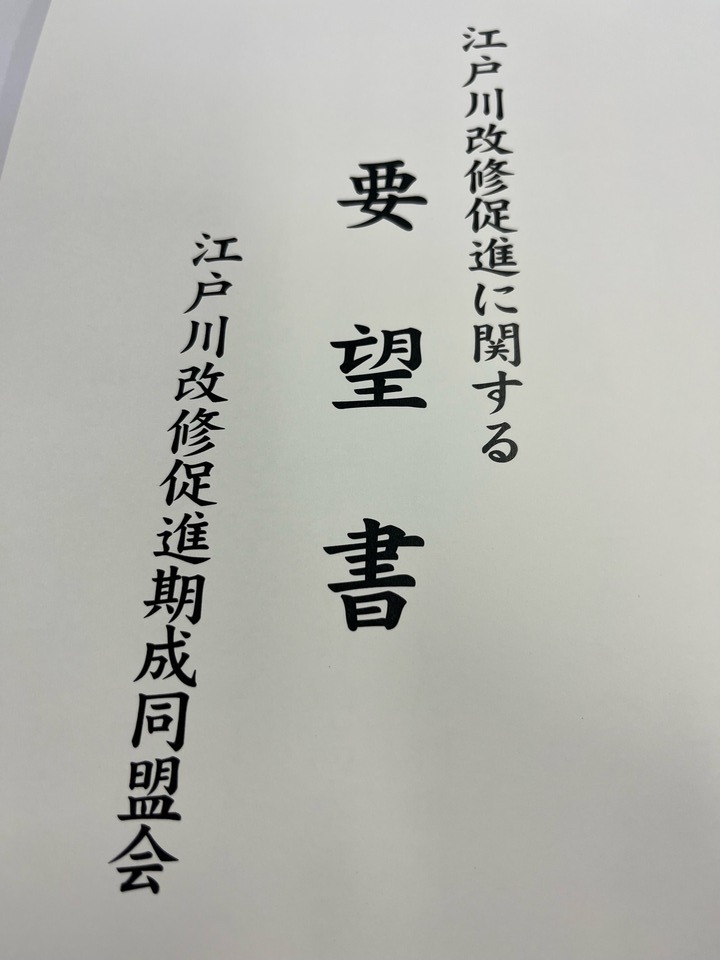 江戸川改修促進に関する
要望書
江戸川改修促進期成同盟会